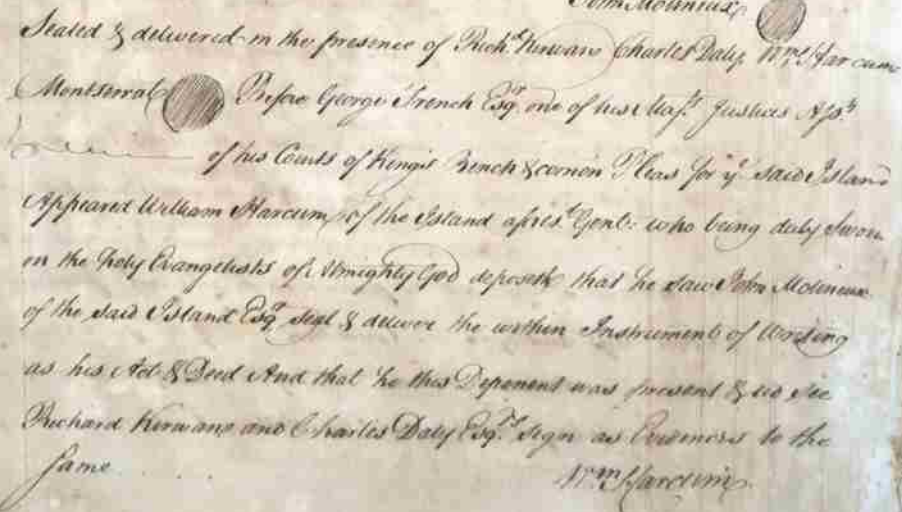 John Molineux
Sealed & delivered in the presence of Richd. Kirwan Charles Daly Wm. Harcum
Montserrat Before George French Esqr. one of his Majts. Justices Assts
of his Courts of Kings Bench & comon Pleas for ye said Island
Appeared William Harcum of the Island aforesd. Gent: who being duly Sworn
on the holy Evangelists of Almighty God deposeth that he saw John Molineux
of the said Island Esqr. Seal & deliver the within Instrument of Writing
as his Act & Deed And that he this Deponent was present & did see
Richard Kirwan and Charles Daly Esqrs. Sign as Evidences to the
Same
Wm. Harcum